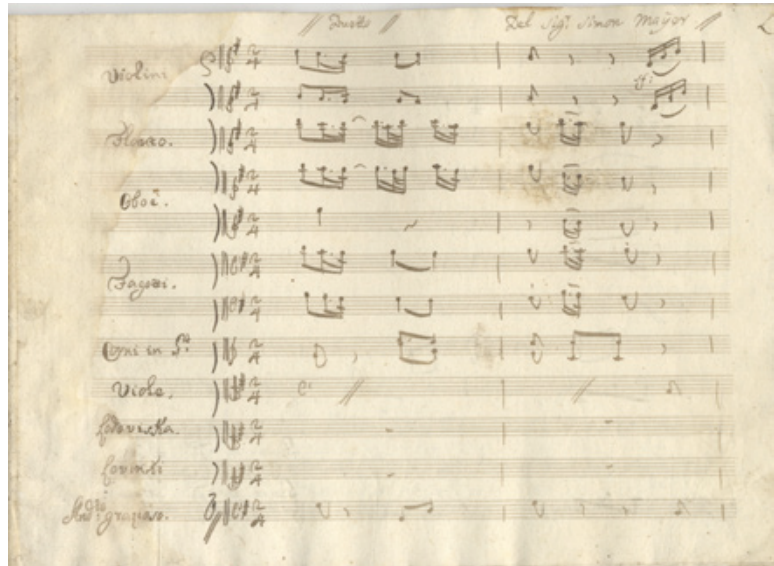 Duetto Del Sigr. Simon Mayer
Violini
Flauto.
Oboè.
Fagotti.
Corni in
Viole.
Lodoviska.
Lovinski
And.no grazioso.